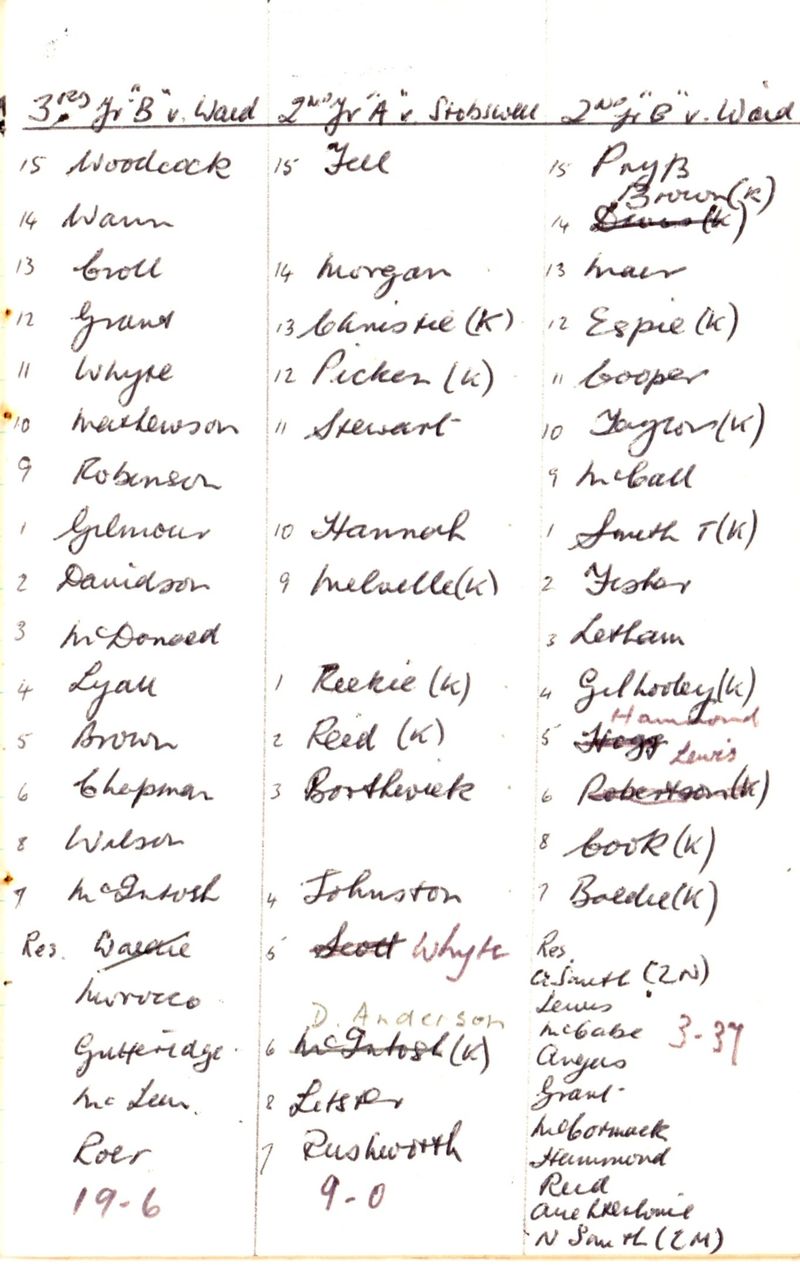 3RD Yr "B" v. Ward
15 Woodcock
14 Wann
13 Croll
12 Grant
11 Whyte
10 Mathewson
9 Robinson
1 Gilmour
2 Davidson
3 McDonald
4 Lyall
5 Brown
6 Chapman
8 Wilson
7 McIntosh
Res. Waddie
Morocco
Gutteridge
McLean
19-6
2ND Yr "A" v. Stobswell
15 Fell
14 Morgan
13 Christie (K)
12 Picken (K)
11 Stewart
10 Hannah
9 Melville (K)
1 Reekie (K)
2 Reid (K)
3 Borthwick
4 Johnston
5 Scott Whyte
D. Anderson
6 McIntosh (K)
8 Lister
7 Rushworth
9-0
2ND Yr "B" v. Ward
15
Brown (K)
14 Lewis (K)
13 Mair
12 Espie (K)
11 Cooper
10 Taylor (K)
9 McCall
1 Smith T (K)
2 Fisher
3 Letham
4 Gilhooley (K)
Hammond
5 Hogg
Lewis
6 Robertson (K)
8 Cook (K)
7 Baldie (K)
Res.
A Smith (2N)
Lewis
McCabe 3-37
Angus
Grant
McCormack
Hammond
Reid
Auchterlonie
N Smith (2M)